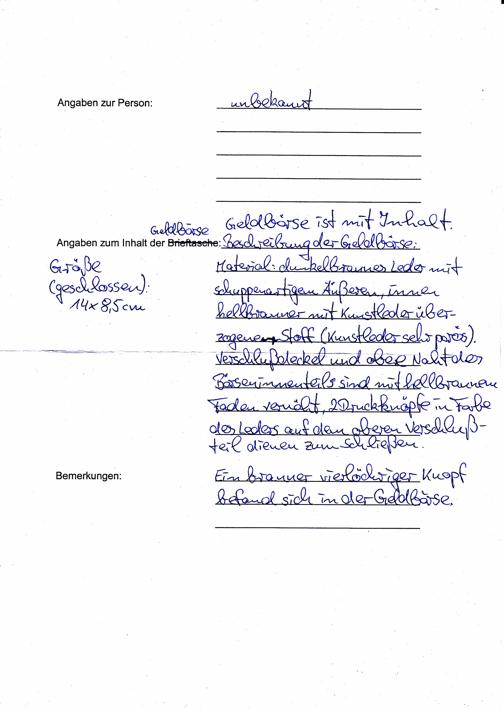 Angaben zur Person: unbekannt
Geldbörse ist mit Inhalt.
Geldbörse
Angaben zum Inhalt der Brieftasche: Beschreibung der Geldbörse:
Größe
(geschlossen):
14x8,5cm
Material: dunkelbraunes Leder mit
schuppenartigem Äußeren, innen
hellbrauner mit Kunstleder über-
zogener Stoff (Kunstleder sehr porös).
Verschlußdeckel und obere Naht des
Börseninnenteils sind mit hellbraunem
Faden vernäht, 2 Druckknöpfe in Farbe
des Leders auf dem oberen Verschluß-
teil dienen zum Schließen.
Bemerkungen: Ein brauner vierlöchriger Knopf
befand sich in der Geldbörse.